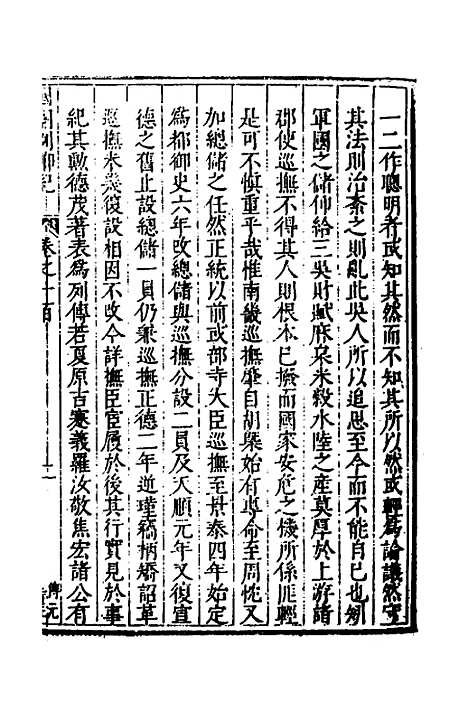 一二作聰明者或知其然而不知其所以然或輕爲論議然守
其法則治紊之則亂此吳人所以追思至今而不能自已也矧
軍國之儲仰給三吳財賦麻枲米榖水陸之產莫厚於上游諸
郡使巡撫不得其人則根本已撥而國家安危之機所係匪輕
是可不慎重乎哉惟南畿巡撫肇自胡槩始有專命至周忱又
加總儲之任然正統以前或部寺大臣巡撫至景泰四年始定
爲都御史六年改總儲與巡撫分設二員及天順元年又復宣
德之舊止設總儲一員仍兼巡撫正德二年逆瑾竊柄矯詔革
巡撫未幾復設相因不改今詳撫臣官履於後其行實見於事
紀其勳德茂著表爲列傳若夏原吉蹇義羅汝敬焦宏諸公有
卷之十